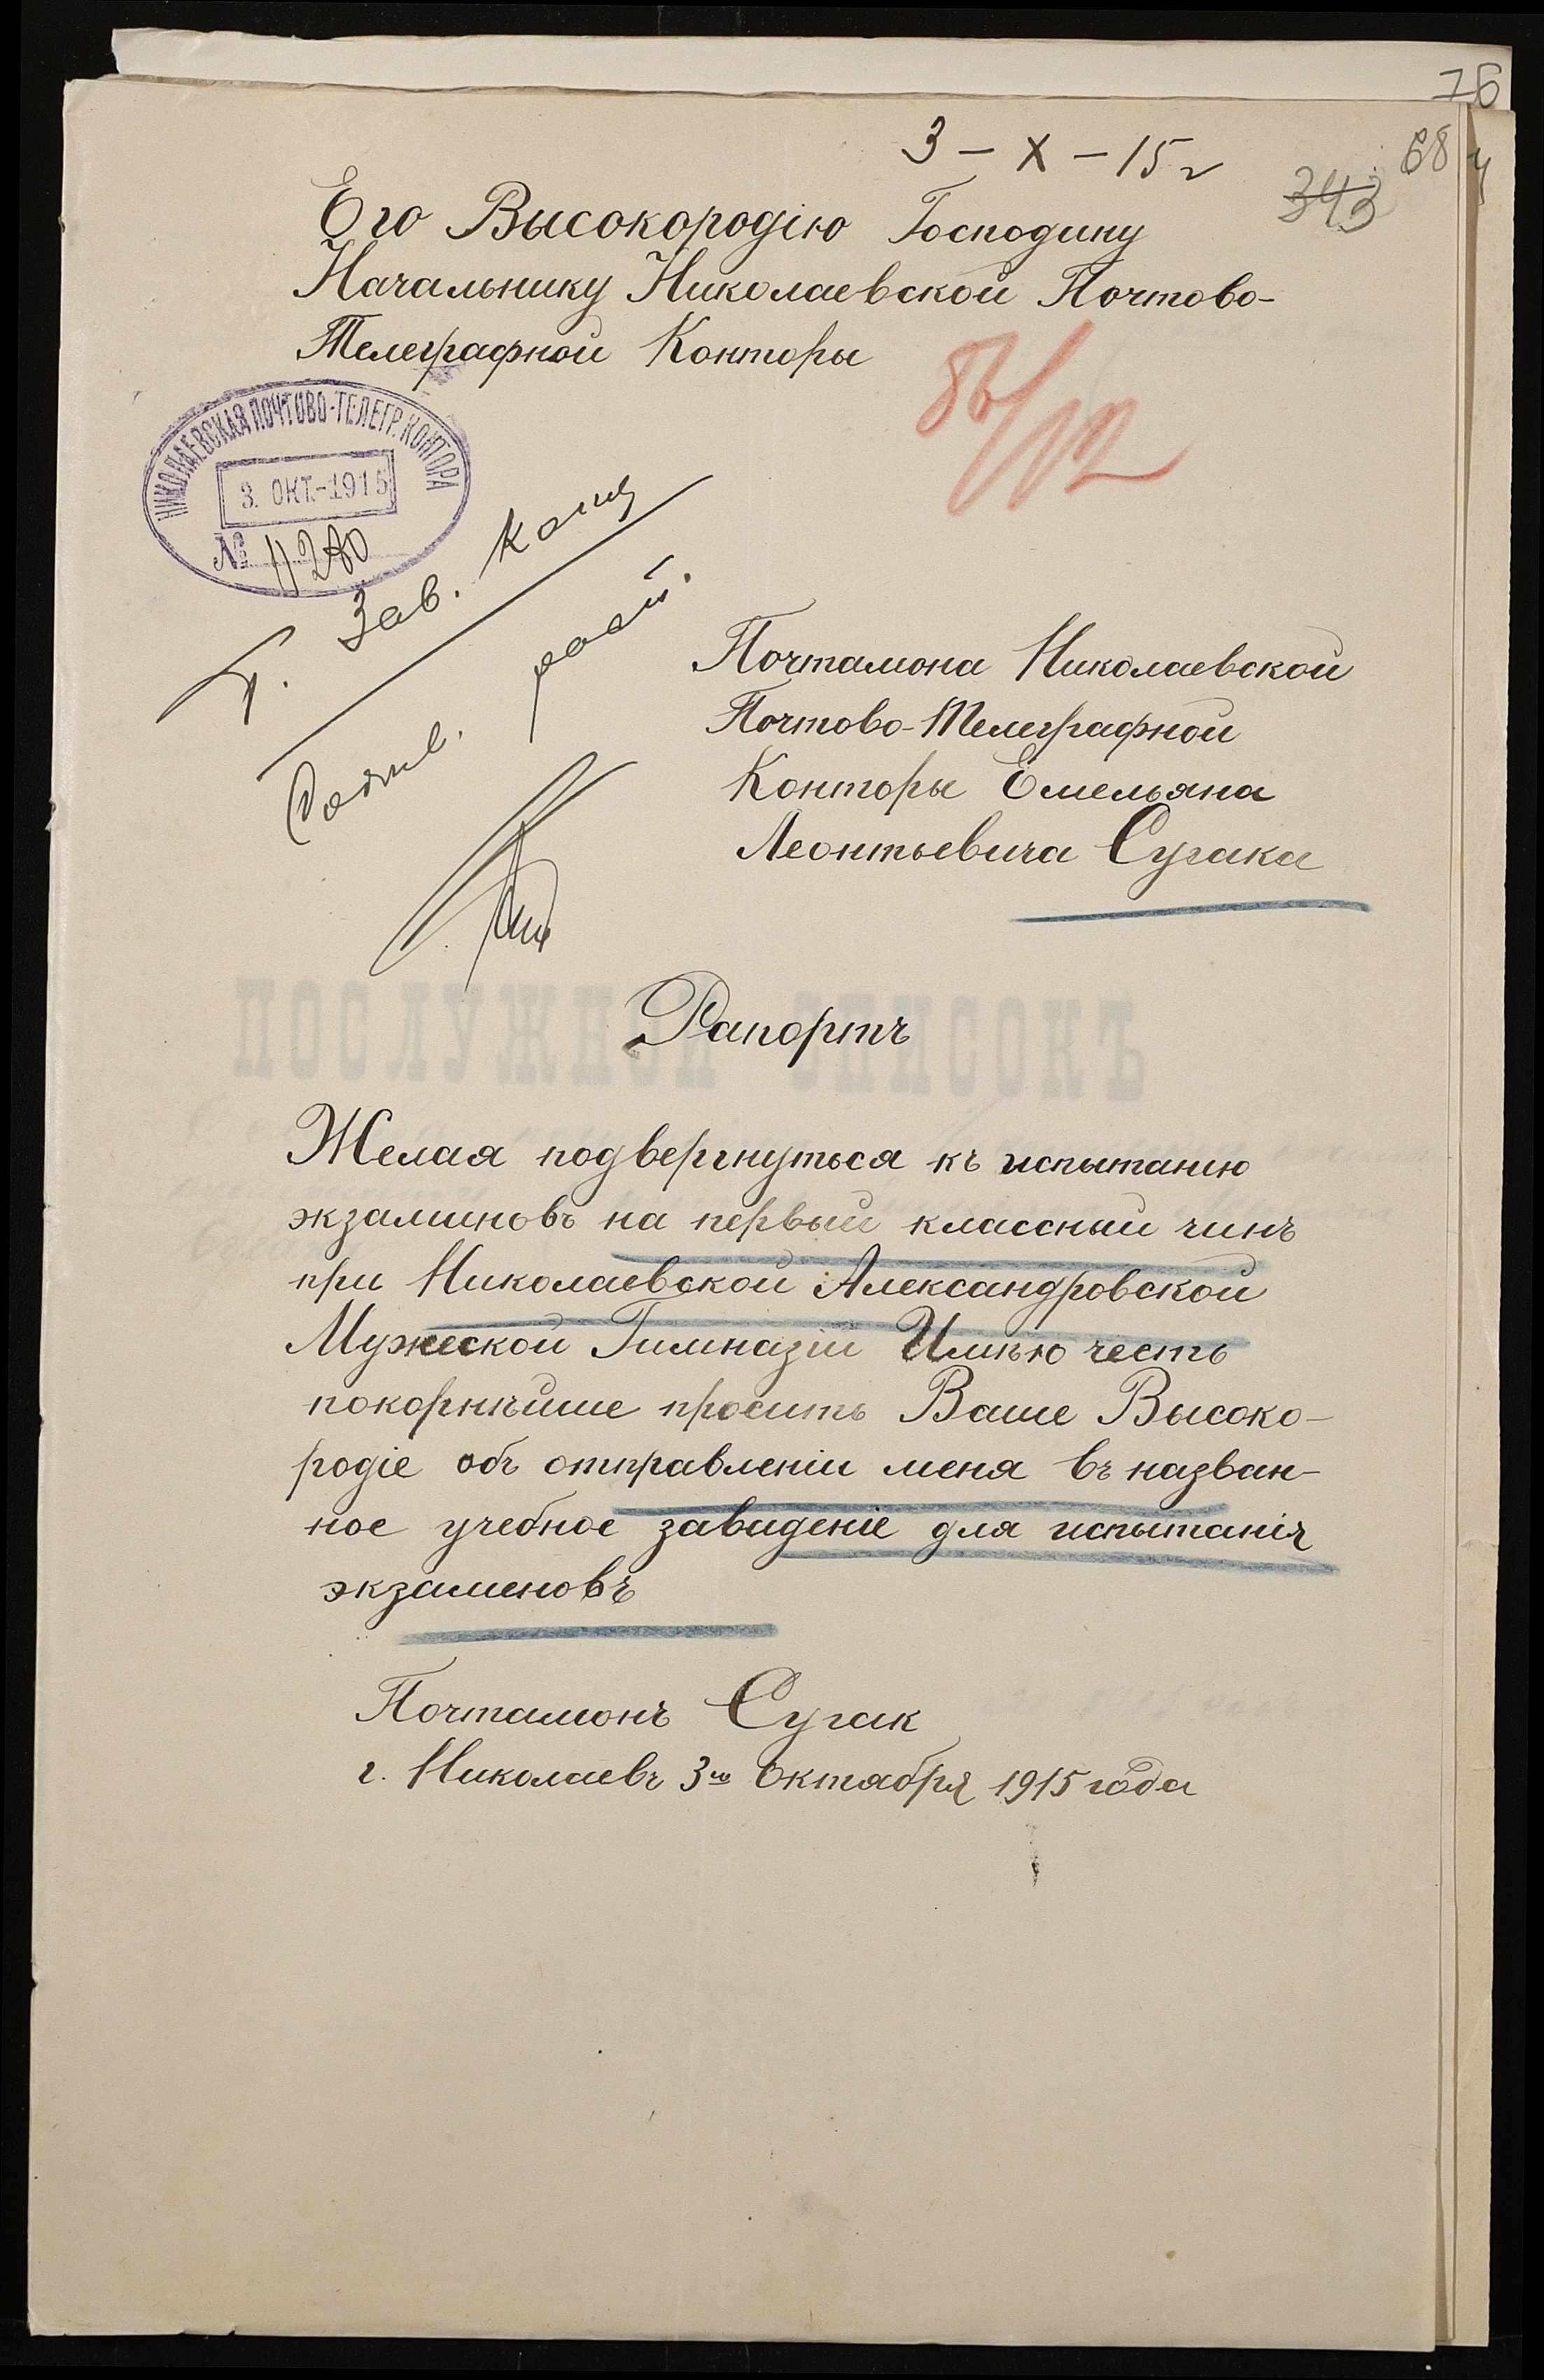 76
3 – X – 15 г
68
343
Его Высокородію Господину
Начальнику Николаевской Почтово-
Телеграфной Конторы
НИКОЛАЕВСКАЯ ПОЧТОВО-ТЕЛЕГР. КОНТОРА
3. ОКТ.-1915
№ 11280
Г. Зав. Канц
Почталиона Николаевской
Почтово-Телеграфной
Конторы Емельяна
Леонтьевича Сугака
ПОСЛУЖНОЙ СПИСОКЪ
Рапортъ
Желая подвергнуться къ испытанію
экзаминовъ на первый классный чинъ
при Николаевской Александровской
Мужеской Гимназіи Имѣю честь
покорнѣйше просить Ваше Высоко-
родіе объ отправленіи меня въ назван-
ное учебное завиденіе для испытанія
экзаменовъ
Почталионъ Сугак
г. Николаевъ 3го Октября 1915 года